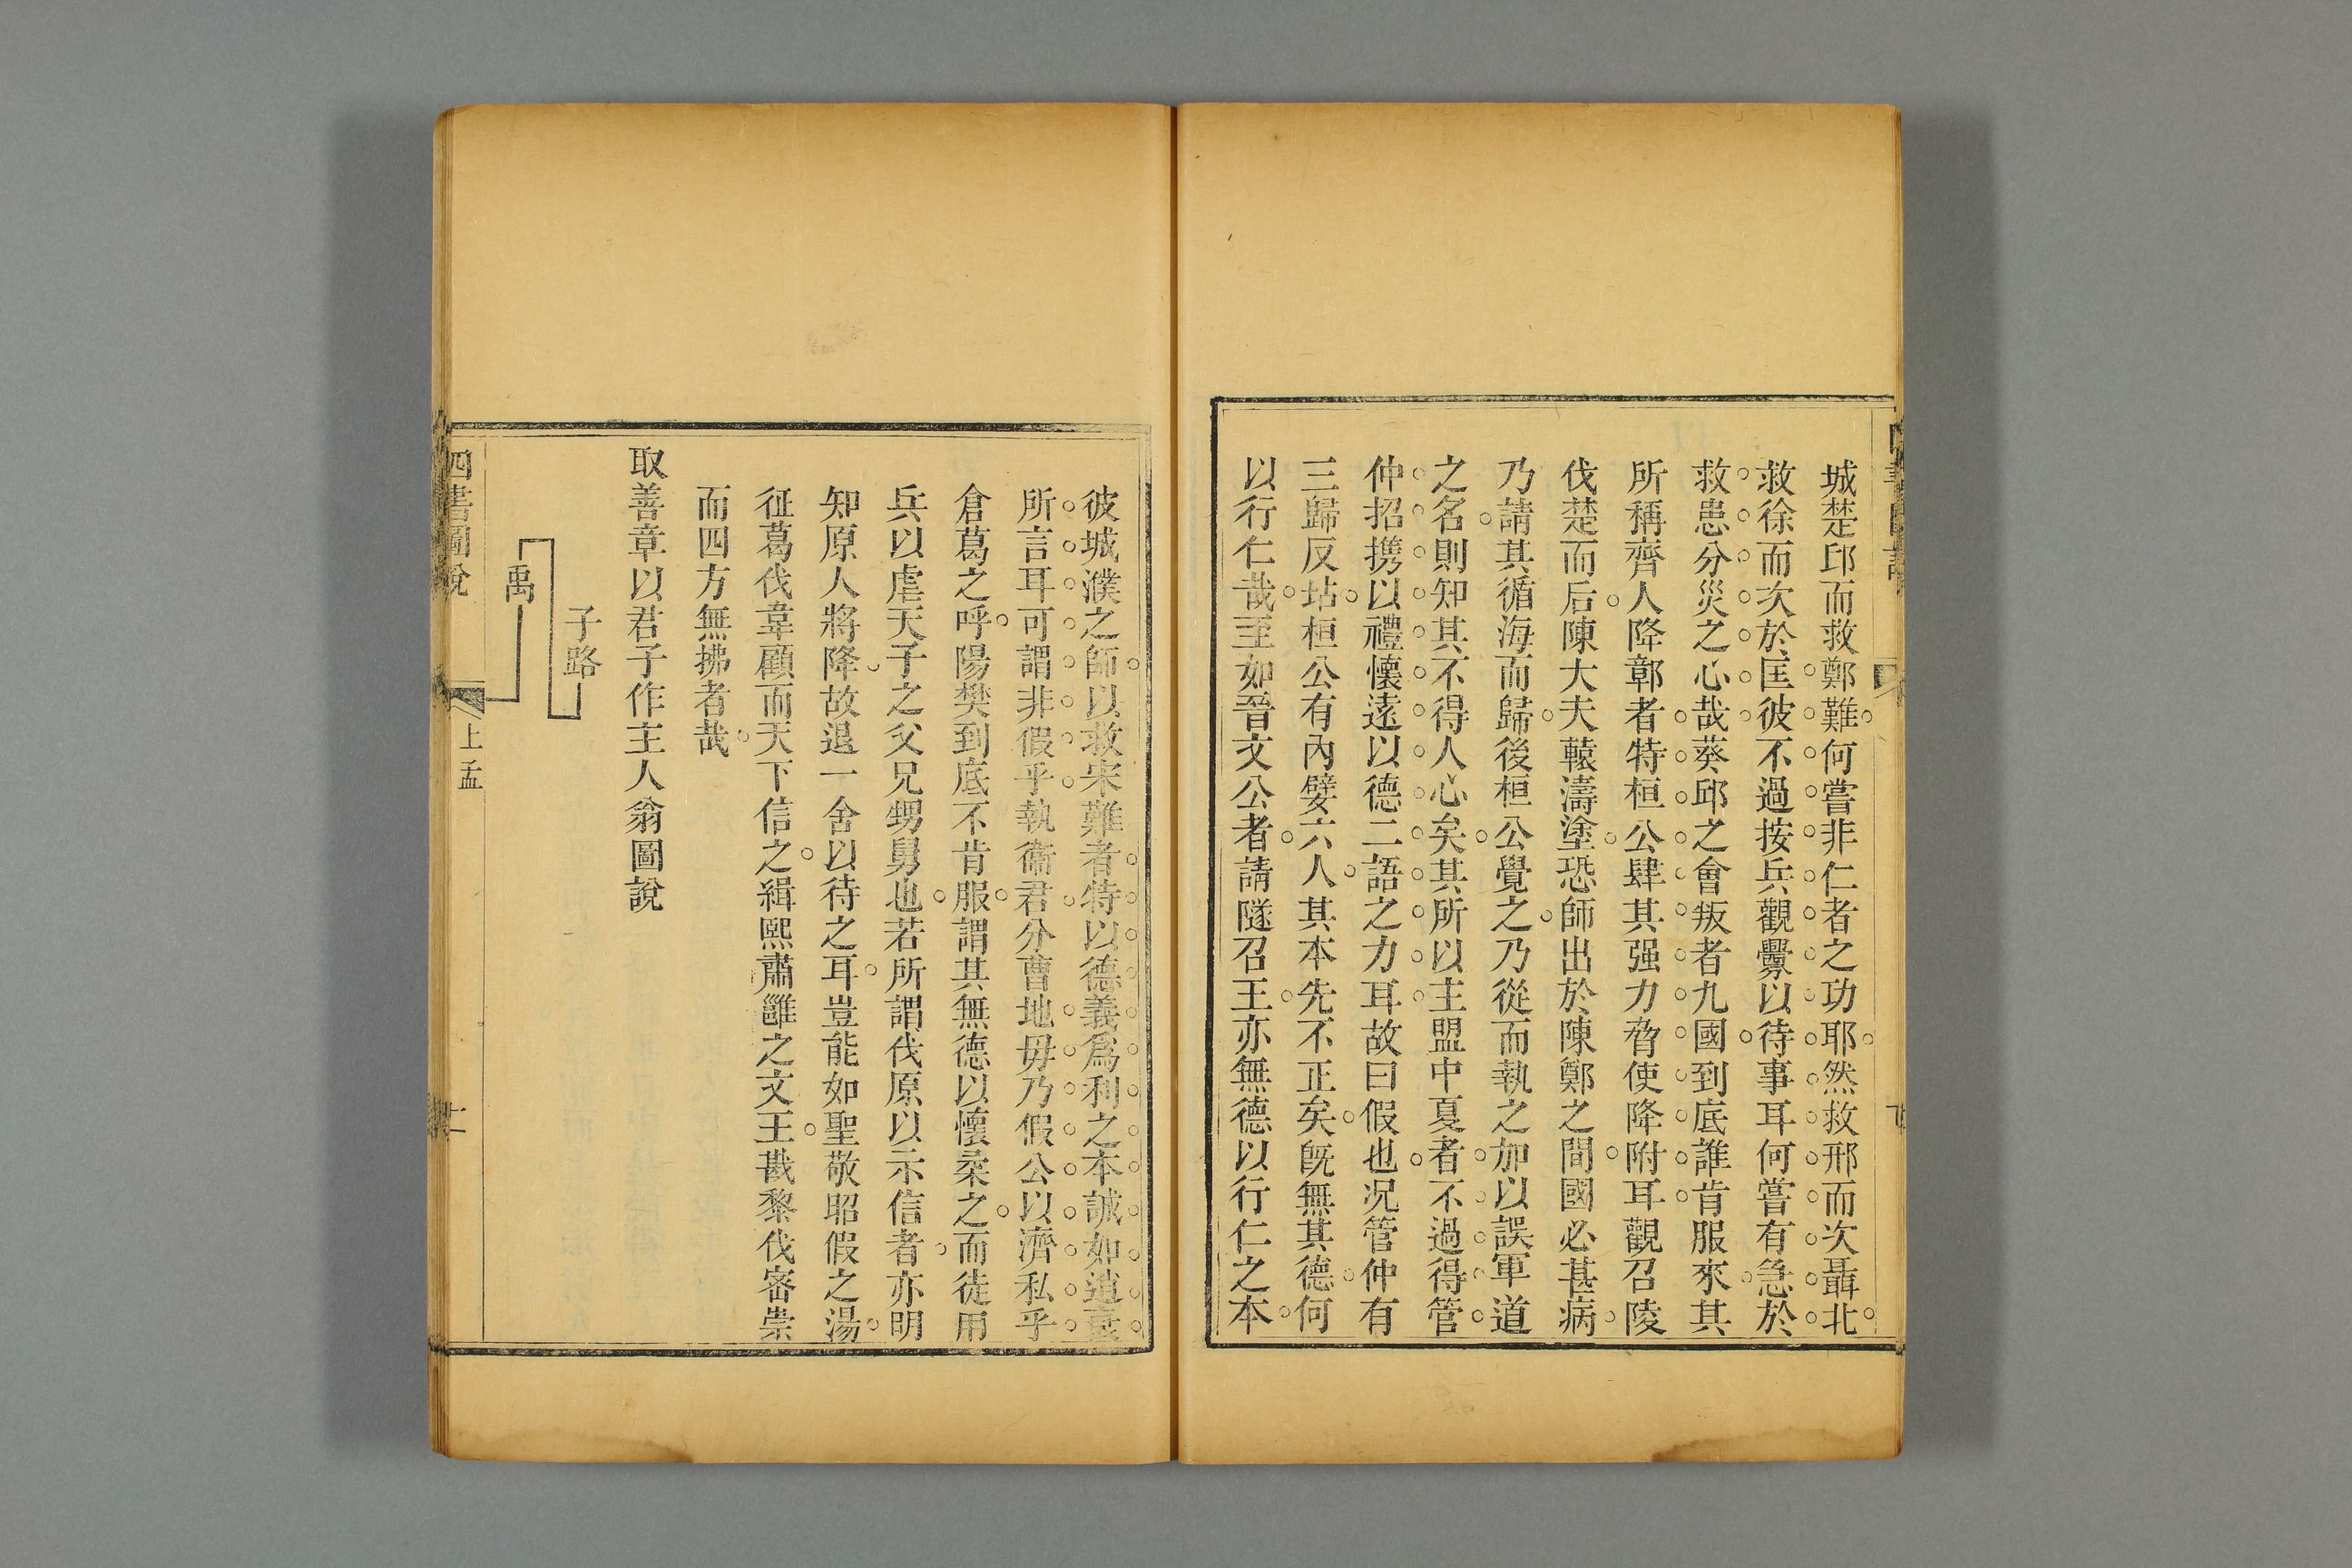 城楚邱而救鄭難何嘗非仁者之功耶然救邢而次聶北
救徐而次於匡彼不過按兵觀釁以待事耳何嘗有急於
救患分災之心哉葵邱之會叛者九國到底誰肯服來其
所稱齊人降鄣者特桓公肆其强力脅使降附耳觀召陵
伐楚而后陳大夫轅濤塗恐師出於陳鄭之間國必甚病
乃請其循海而歸後桓公覺之乃從而執之加以誤軍道
之名則知其不得人心矣其所以主盟中夏者不過得管
仲招携以禮懷遠以德二語之力耳故曰假也况管仲有
三歸反坫桓公有內嬖六人其本先不正矣旣無其德何
以行仁哉至如晉文公者請隧召王亦無德以行仁之本
彼城濮之師以救宋難者特以德義爲利之本誠如趙衰
所言耳可謂非假乎執衞君分曹地毋乃假公以濟私乎
倉葛之呼陽樊到底不肯服謂其無德以懷柔之而徒用
兵以虐天子之父兄甥舅也若所謂伐原以示信者亦明
知原人將降故退一舍以待之耳豈能如聖敬昭假之湯
征葛伐韋顧而天下信之緝熙肅雝之文王戡黎伐密崇
而四方無拂者哉
取善章以君子作主人翁圖說
子路
禹
四書圖說
上孟